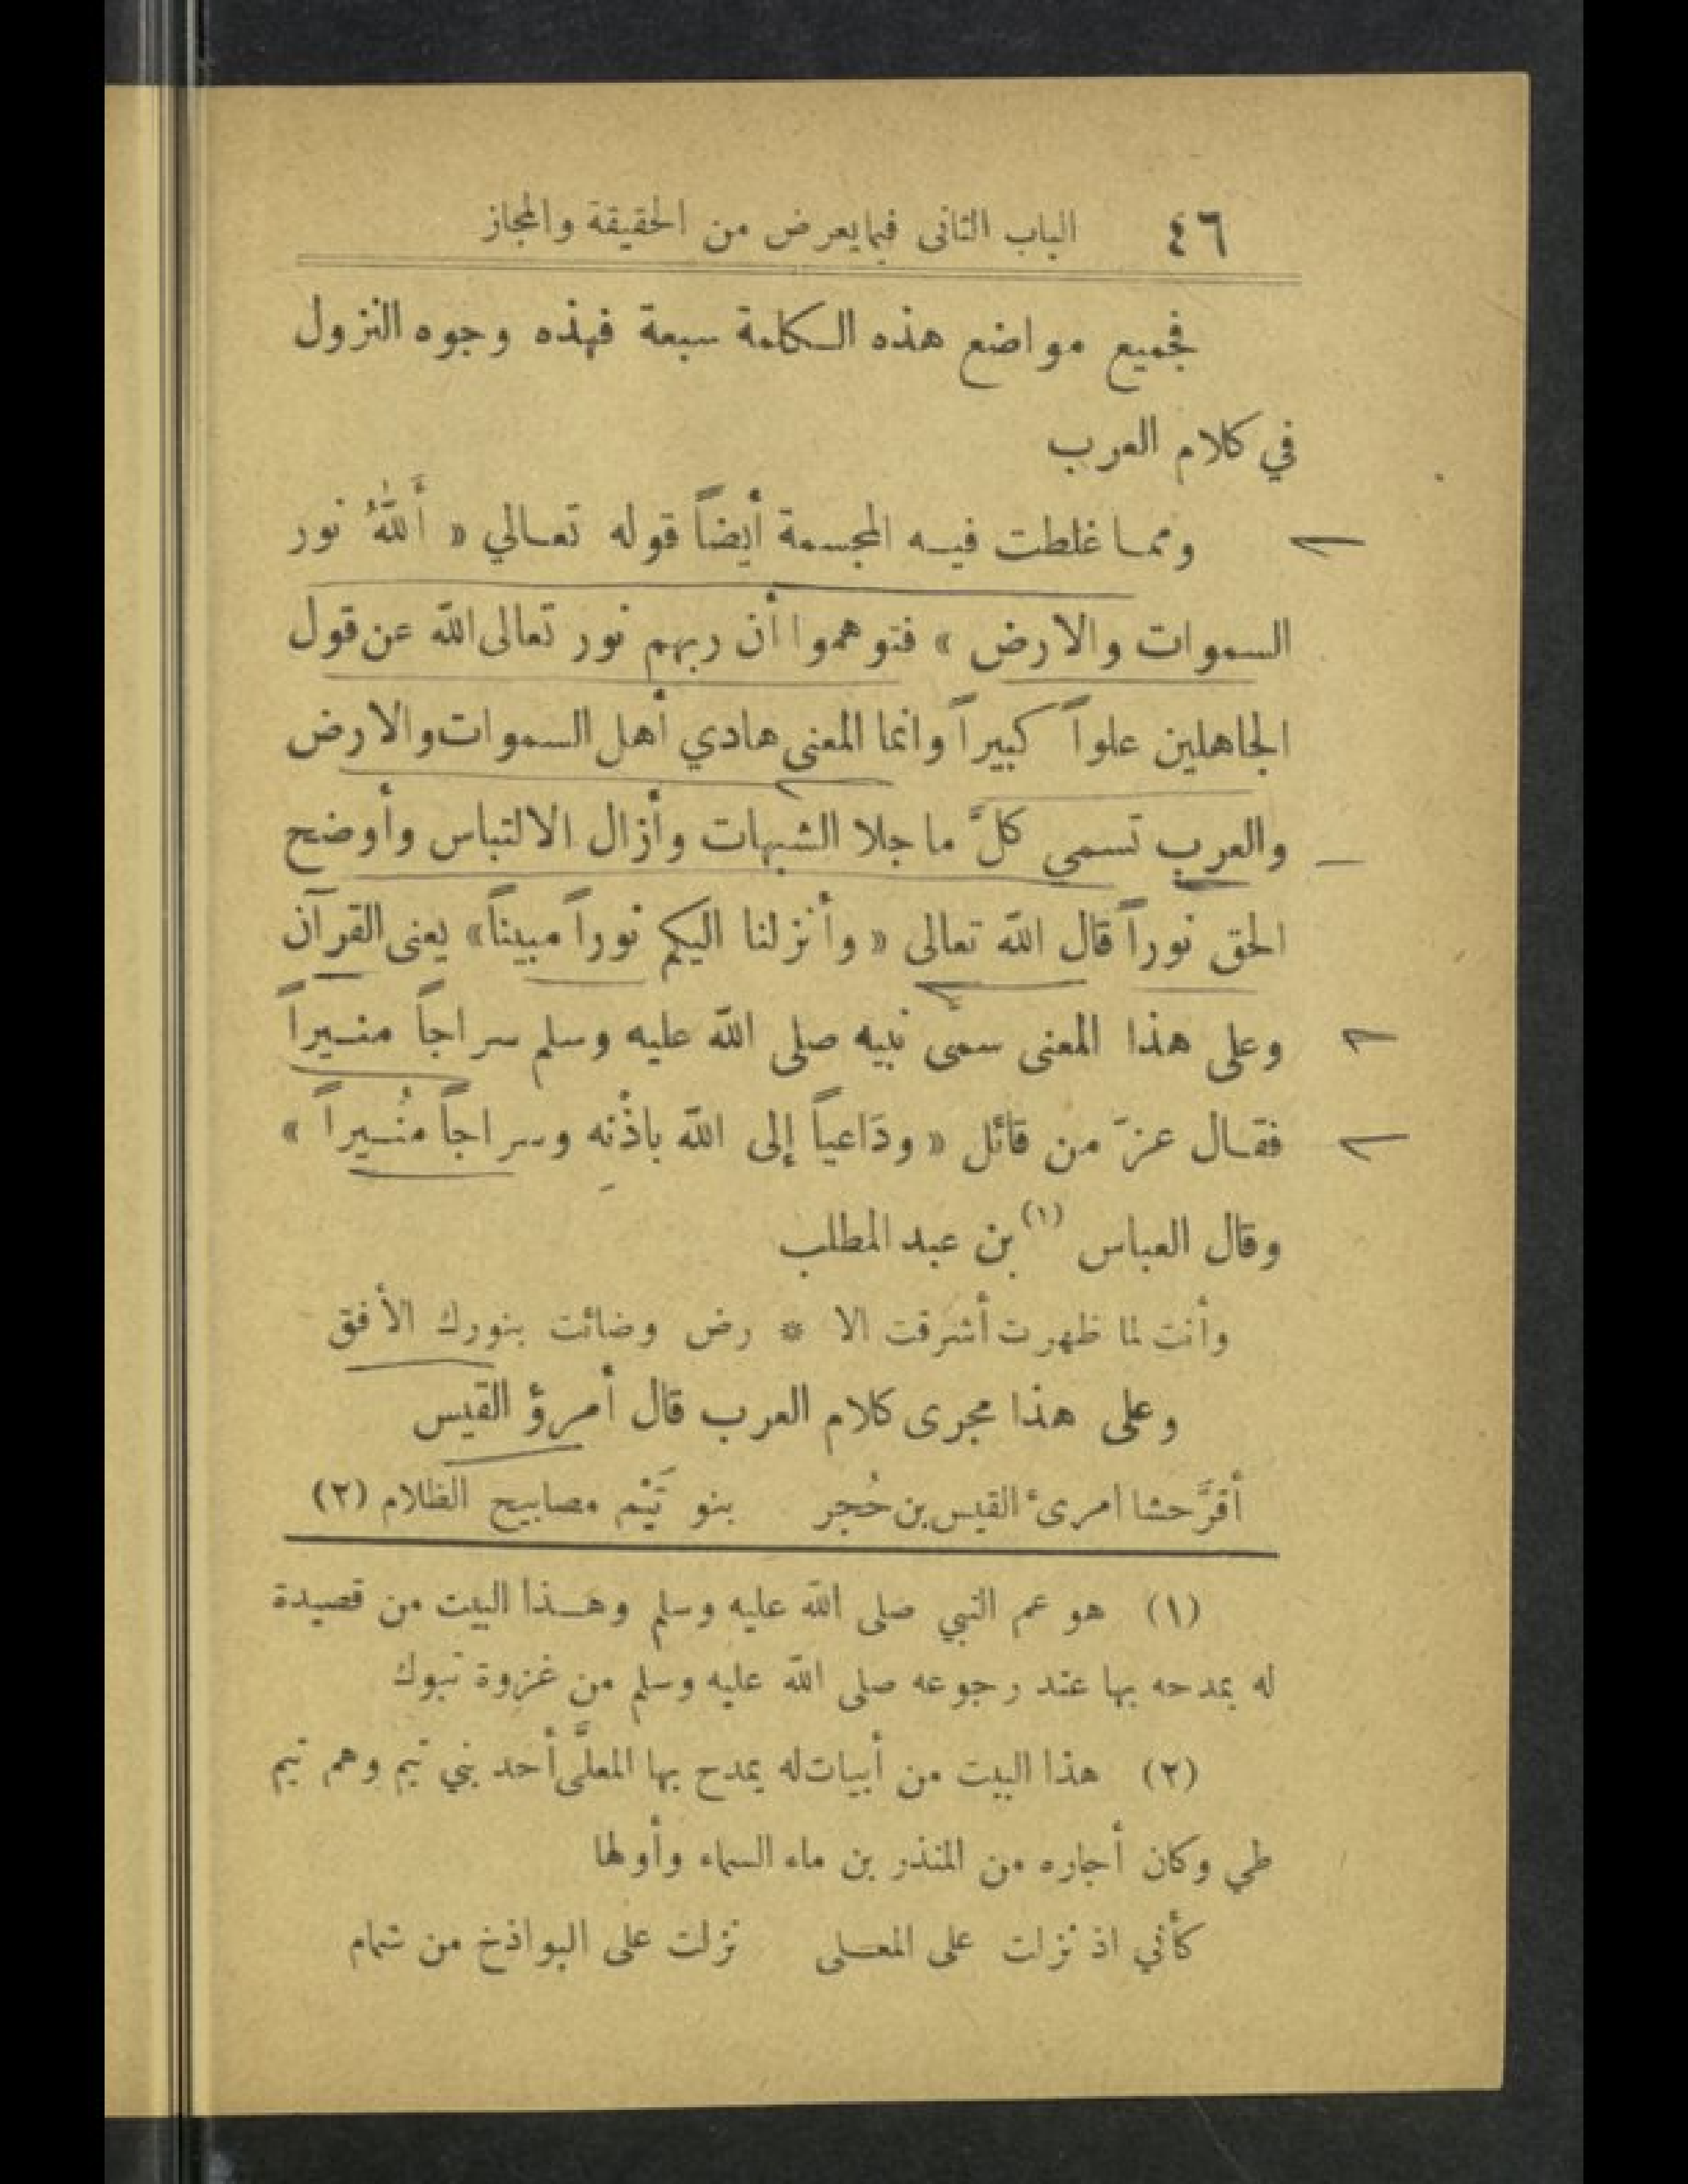 ٤٦ الباب الثانى فيما يعرض من الحقيقة والمجاز
فجميع مواضع هذه الكلمة سبعة فهذه وجوه النزول
في كلام العرب
ومما غلطت فيه المجسمة أيضاً قوله تعالي « أَللّٰهُ نور
السموات والارض » فتوهموا أن ربهم نور تعالى الله عن قول
الجاهلين علواً كبيراً وانما المعنى هادي أهل السموات والارض
والعرب تسمي كلَّ ما جلا الشبهات وأزال الالتباس وأوضح
الحق نوراً قال الله تعالى « وأنزلنا اليكم نوراً مبيناً » يعنى القرآن
وعلى هذا المعنى سمى نبيه صلى الله عليه وسلم سراجاً منيراً
فقال عزَّ من قائل « ودَاعياً إلى الله باذْنِه وسراجاً مُنيراً »
وقال العباس (١) بن عبد المطلب
وأنت لما ظهرت أشرقت الا * رض وضائت بنورك الأفق
وعلى هذا مجرى كلام العرب قال أمرؤ القيس
أقرَّ حشا امرىء القيس بن حُجر بنو تَيْم مصابيح الظلام (٢)
(١) هو عم النبي صلى الله عليه وسلم وهذا البيت من قصيدة
له يمدحه بها عند رجوعه صلى الله عليه وسلم من غزوة تبوك
(٢) هذا البيت من أبيات له يمدح بها المعلَّى أحد بني تيم وهم تيم
طي وكان أجاره من المنذر بن ماء السماء وأولها
كأني اذ نزلت على المعلى نزلت على البواذخ من شمام